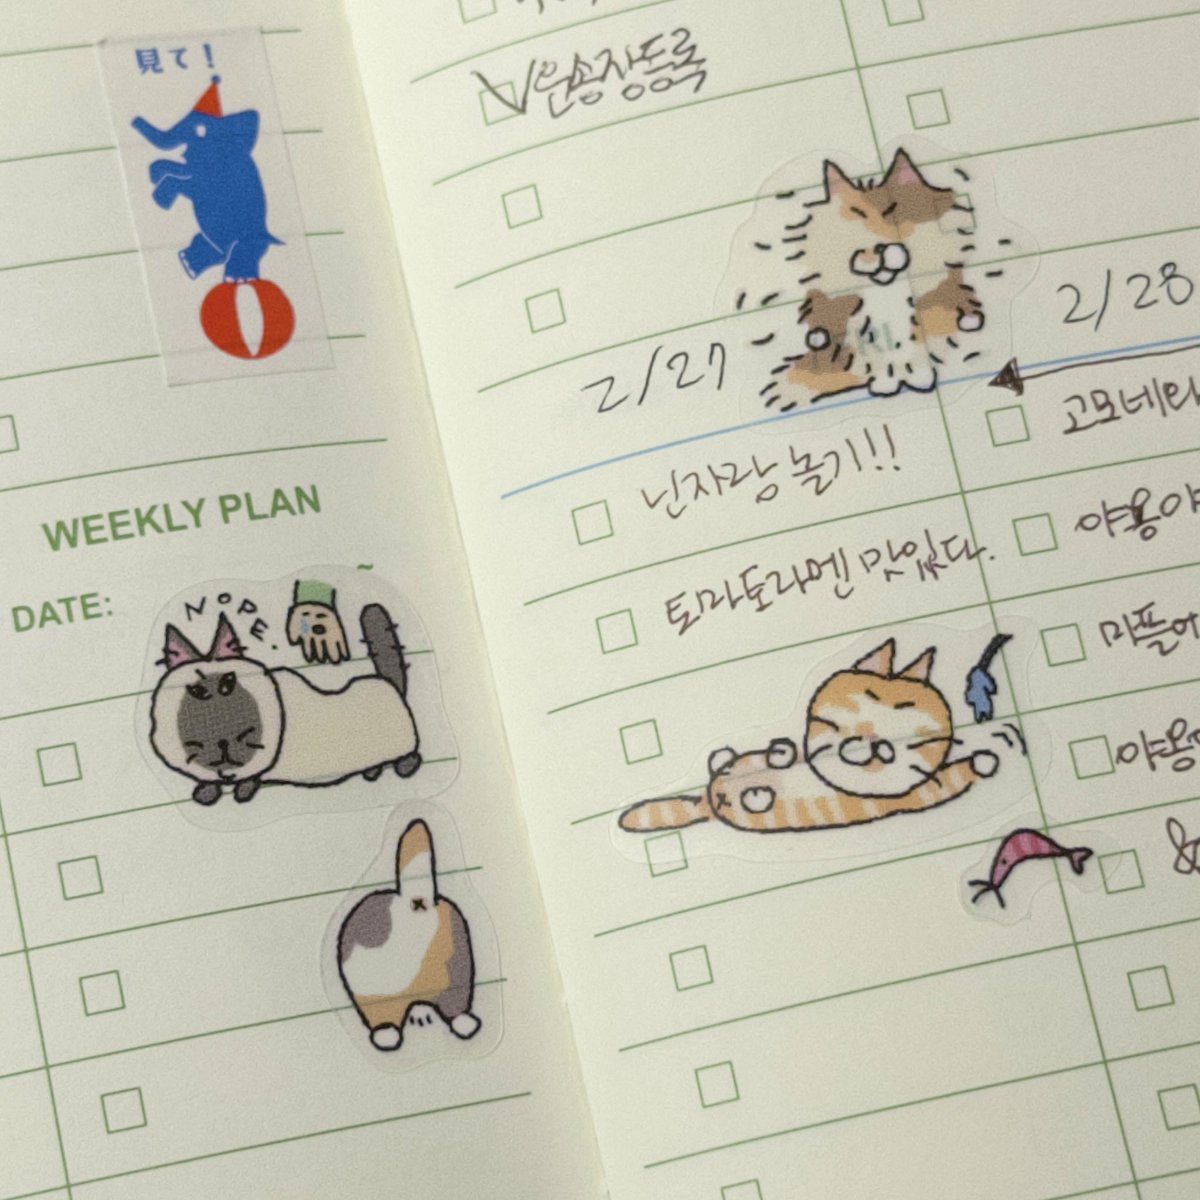 見て！
WEEKLY PLAN
DATE:
~
NOPE.
운송장등록
2/27
닌자랑 놀기!!
토마토라멘 맛있다.
2/28
고모네
야옹
미플
야옹